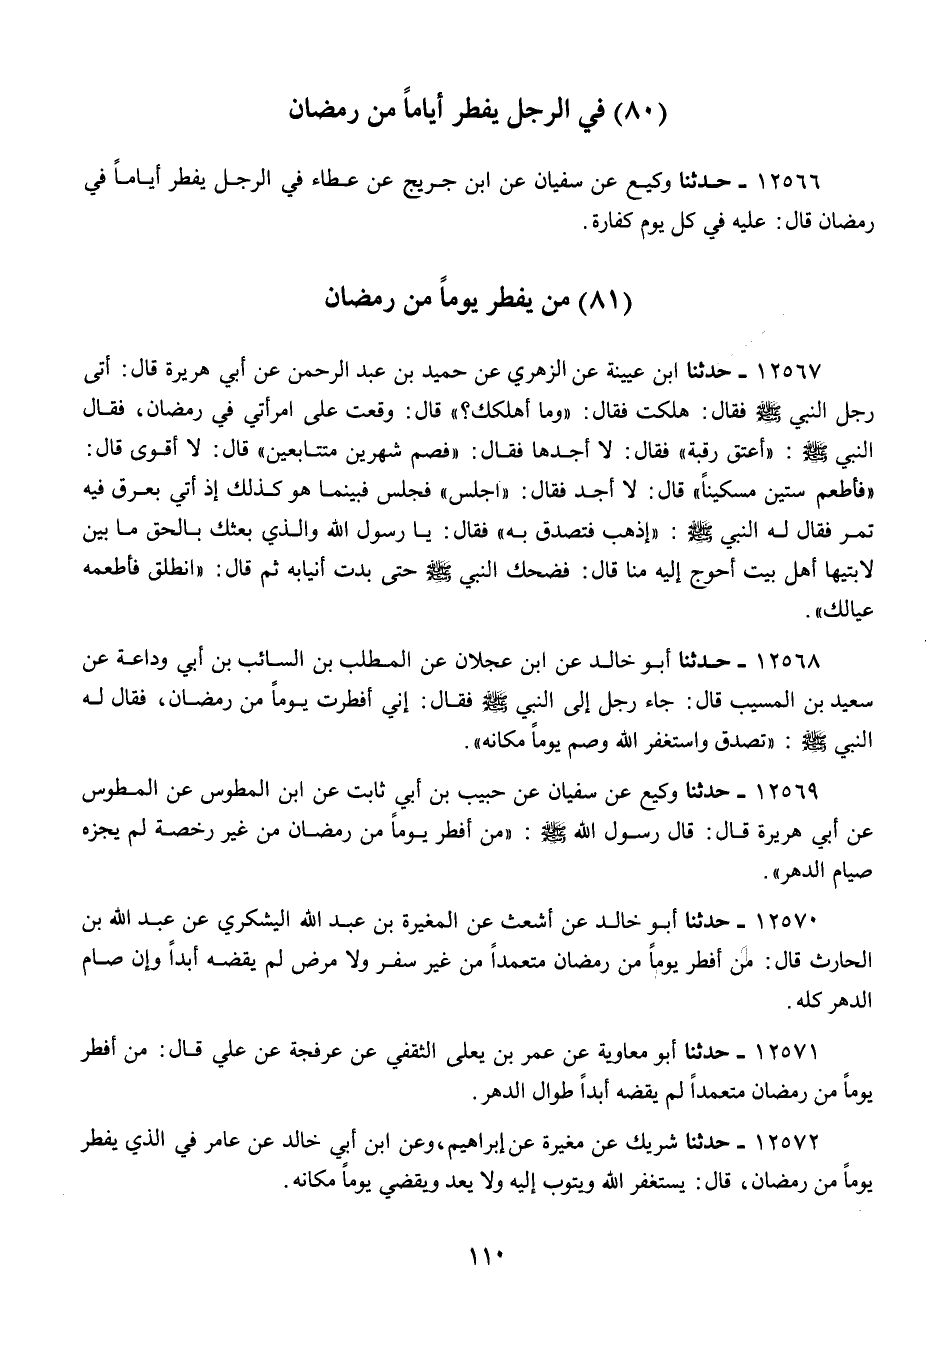 (٨٠) في الرجل يفطر أياماً من رمضان
١٢٥٦٦ ـ حدثنا وكيع عن سفيان عن ابن جريج عن عطاء في الرجل يفطر أياماً في
رمضان قال: عليه في كل يوم كفارة.
(٨١) من يفطر يوماً من رمضان
١٢٥٦٧ ـ حدثنا ابن عيينة عن الزهري عن حميد بن عبد الرحمن عن أبي هريرة قال: أتى
رجل النبي ﷺ فقال: هلكت فقال: «وما أهلكك؟» قال: وقعت على امرأتي في رمضان، فقال
النبي ﷺ : «أعتق رقبة» فقال: لا أجدها فقال: «فصم شهرين متتابعين» قال: لا أقوى قال:
«فأطعم ستين مسكيناً» قال: لا أجد فقال: «اجلس» فجلس فبينما هو كذلك إذ أتي بعرق فيه
تمر فقال له النبي ﷺ : «إذهب فتصدق به» فقال: يا رسول الله والذي بعثك بالحق ما بين
لابتيها أهل بيت أحوج إليه منا قال: فضحك النبي ﷺ حتى بدت أنيابه ثم قال: «انطلق فأطعمه
عيالك».
١٢٥٦٨ ـ حدثنا أبو خالد عن ابن عجلان عن المطلب بن السائب بن أبي وداعة عن
سعيد بن المسيب قال: جاء رجل إلى النبي ﷺ فقال: إني أفطرت يوماً من رمضان، فقال له
النبي ﷺ : «تصدق واستغفر الله وصم يوماً مكانه».
١٢٥٦٩ ـ حدثنا وكيع عن سفيان عن حبيب بن أبي ثابت عن ابن المطوس عن المطوس
عن أبي هريرة قال: قال رسول الله ﷺ : «من أفطر يوماً من رمضان من غير رخصة لم يجزه
صيام الدهر».
١٢٥٧٠ ـ حدثنا أبو خالد عن أشعث عن المغيرة بن عبد الله اليشكري عن عبد الله بن
الحارث قال: من أفطر يوماً من رمضان متعمداً من غير سفر ولا مرض لم يقضه أبداً وإن صام
الدهر كله.
١٢٥٧١ ـ حدثنا أبو معاوية عن عمر بن يعلى الثقفي عن عرفجة عن علي قال: من أفطر
يوماً من رمضان متعمداً لم يقضه أبداً طوال الدهر.
١٢٥٧٢ ـ حدثنا شريك عن مغيرة عن إبراهيم، وعن ابن أبي خالد عن عامر في الذي يفطر
يوماً من رمضان، قال: يستغفر الله ويتوب إليه ولا يعد ويقضي يوماً مكانه.
١١٠